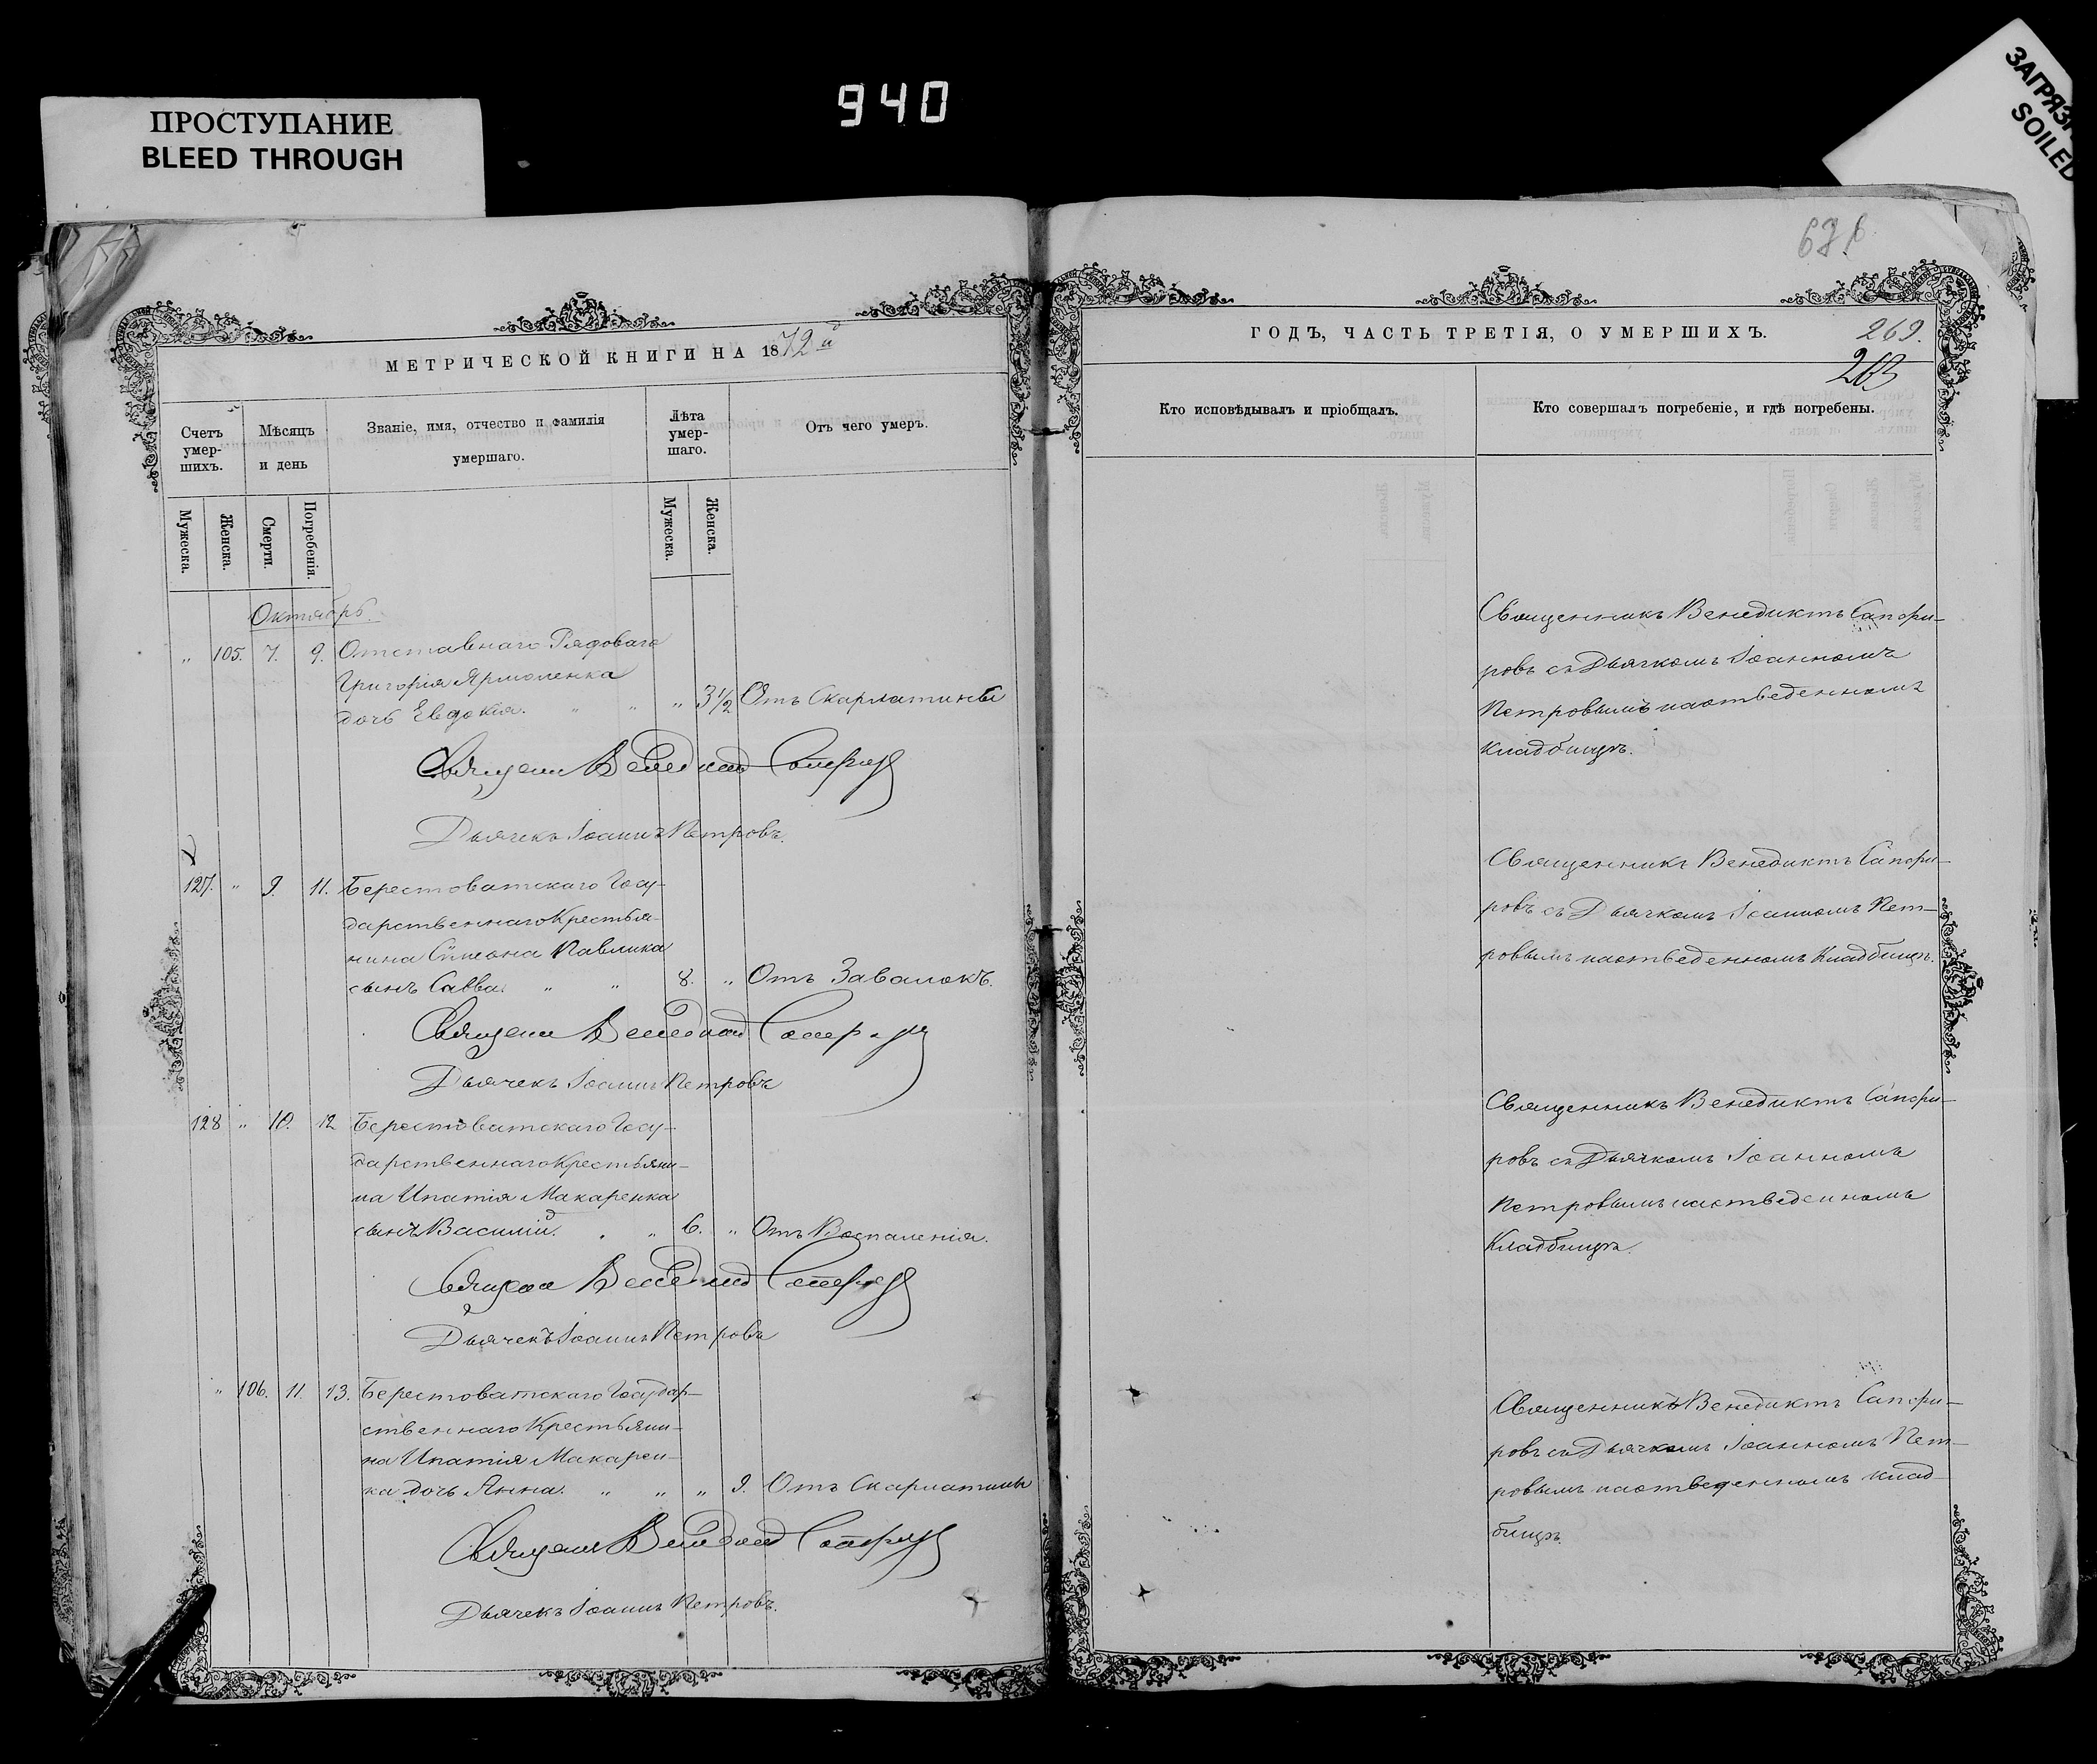 940
ПРОСТУПАНИЕ
BLEED THROUGH
SOILED
МЕТРИЧЕСКОЙ КНИГИ НА 1872й
Счетъ умер-шихъ.
Мѣсяцъ и день
Званіе, имя, отчество и фамилія умершаго.
Лѣта умер-шаго.
Отъ чего умеръ.
Мужеска.
Женска.
Смерти.
Погребенія.
Мужеска.
Женска.
Октябрь.
„ 105. 7. 9. Отставнаго Рядоваго
Григорія Ярмоленка
дочь Евдокія. „ „ „ 3½ Отъ Скарлатины
Дьячекъ Іоаннъ Петровъ.
127. „ 9. 11. Берестоватскаго Госу-
дарственнаго Крестья-
нина Сүмеона Павлика
сынъ Савва. „ „ 8. „ Отъ Завалокъ.
Дьячекъ Іоаннъ Петровъ
128 „ 10. 12 Берестоватскаго Госу-
дарственнаго Крестьяни-
на Ипатія Макаренка
сынъ Василій. „ 6. „ Отъ Воспаленія.
Дьячекъ Іоаннъ Петровъ
„ 106. 11. 13. Берестоватскаго Государ-
ственнаго Крестьяни-
на Ипатія Макарен-
ка дочь Анна. „ „ „ 9. Отъ Скарлатины
Дьячекъ Іоаннъ Петровъ.
ГОДЪ, ЧАСТЬ ТРЕТІЯ, О УМЕРШИХЪ.
269.
263
Кто исповѣдывалъ и пріобщалъ.
Кто совершалъ погребеніе, и гдѣ погребены.
Священникъ Венедиктъ Сапфи-
ровъ съ Дьячкомъ Іоанномъ
Петровымъ наотведенномъ
кладбищѣ.
Священникъ Венедиктъ Сапфи-
ровъ съ Дьячкомъ Іоанномъ Пет-
ровымъ наотведенномъ Кладбищѣ.
Священникъ Венедиктъ Сапфи-
ровъ съ Дьячкомъ Іоанномъ
Петровымъ наотведенномъ
Кладбищѣ.
Священникъ Венедиктъ Сапфи-
ровъ съ Дьячкомъ Іоанномъ Пет-
ровымъ наотведенномъ клад-
бищѣ.